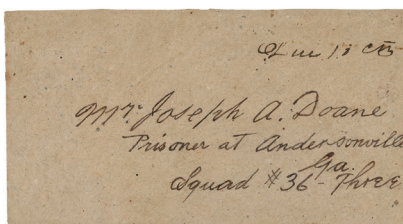 Due 10 cts
Mr. Joseph A. Doane
Prisoner at Andersonville
Ga.
Squad #36 - Three